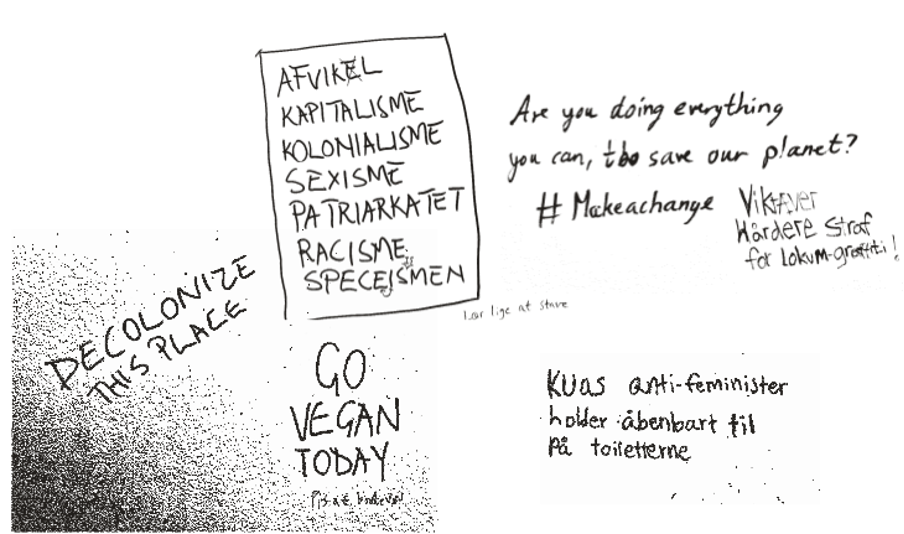 AFVIKEL
KAPITALISME
KOLONIALISME
SEXISME
PATRIARKATET
RACISME
SPECEISMEN
Lær lige at stave
Are you doing everything
you can, to save our planet?
#Makeachange
Vi kræver
Hårdere straf
for lokum-graffiti!
DECOLONIZE
THIS PLACE
GO
VEGAN
TODAY
KUAs anti-feminister
holder åbenbart til
På toiletterne